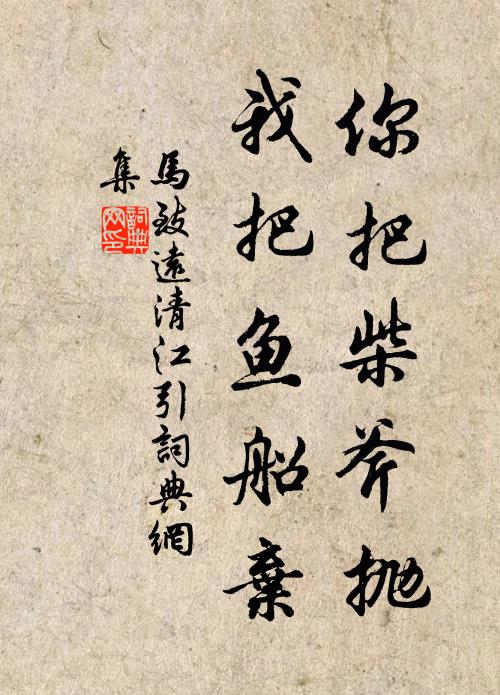 你把柴斧抛
我把鱼船棄
馬致遠清江引詞典網
集
詞典
网印